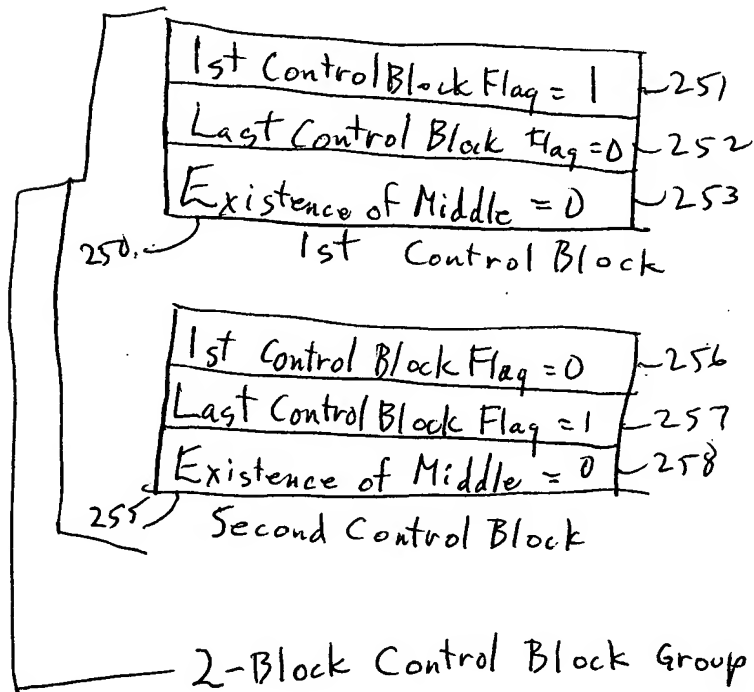 1st Control Block Flag = 1 251
Last Control Block Flag = 0 252
Existence of Middle = 0 253
250.
1st Control Block
1st Control Block Flag = 0 256
Last Control Block Flag = 1 257
Existence of Middle = 0 258
255
Second Control Block
2-Block Control Block Group